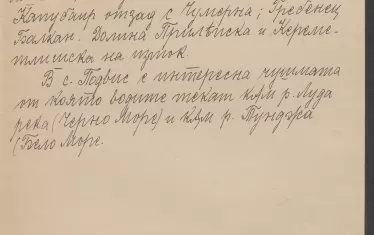 Капубаир отзад с Чумерна; Гребенец
Балкан. Долина Прилѣпска и Кереме-
тлийска на изток.
В с. Подвис е интересна чушмата
от която водите текат към р. Луда
река (Черно Море) и към р. Тунджа
(Бѣло Море.